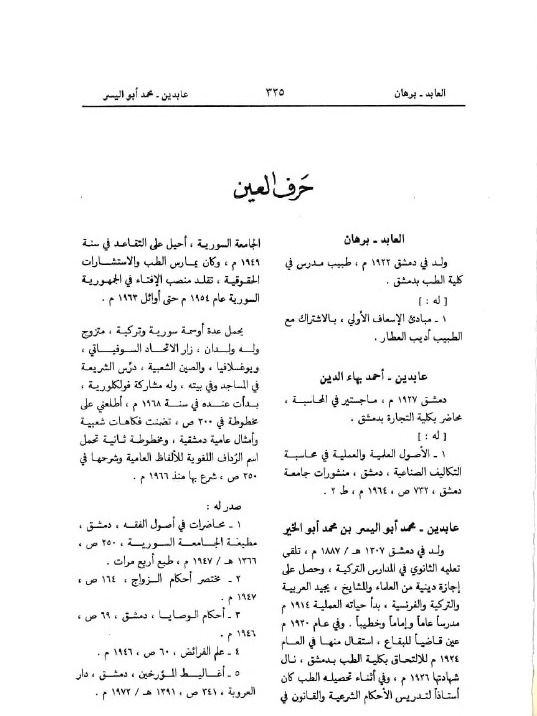 العابد ـ برهان
٣٣٥
عابدين ـ محمد أبو اليسر
حَرف العين
العابد ـ برهان
ولد في دمشق ١٩٢٢ م ، طبيب مدرس في
كلية الطب بدمشق .
[ له : ]
١ ـ مبادئ الإسعاف الأولي ، بالاشتراك مع
الطبيب أديب العطار .
عابدين ـ أحمد بهاء الدين
دمشق ١٩٢٧ م ، ماجستير في المحاسبة ،
محاضر بكلية التجارة بدمشق .
[ له : ]
١ ـ الأصول العلمية والعملية في محاسبة
التكاليف الصناعية ، دمشق ، منشورات جامعة
دمشق ، ٧٣٢ ص ، ١٩٦٤ م ، ط ٢ .
عابدين ـ محمد أبو اليسر بن محمد أبو الخير
ولد في دمشق ١٣٠٧ هـ / ١٨٨٧ م ، تلقى
تعليمه الثانوي في المدارس التركية ، وحصل على
إجازة دينية من العلماء والمشايخ ، يجيد العربية
والتركية والفرنسية ، بدأ حياته العملية ١٩١٤ م
مدرساً عاماً وإماماً وخطيباً . وفي عام ١٩٢٠ م
عين قاضياً للبقاع ، استقال منها في العام
١٩٢٤ م للالتحاق بكلية الطب بدمشق ، نال
شهادتها ١٩٢٦ م ، وفي أثناء تحصيله الطب كان
أستاذاً لتدريس الأحكام الشرعية والقانون في
الجامعة السورية ، أحيل على التقاعد في سنة
١٩٤٩ م ، وكان يمارس الطب والاستشارات
الحقوقية ، تقلد منصب الإفتاء في الجمهورية
السورية عام ١٩٥٤ م حتى أوائل ١٩٦٣ م .
يحمل عدة أوسمة سورية وتركية ، متزوج
وله ولدان ، زار الاتحاد السوفياتي ،
ويوغسلافيا ، والصين الشعبية ، درَّس الشريعة
في المساجد وفي بيته ، وله مشاركة فولكلورية ،
بدأت عنده في سنة ١٩٦٨ م ، أطلعني على
مخطوطة في ٣٠٠ ص ، تضمنت فكاهات شعبية
وأمثال عامية دمشقية ، ومخطوطة ثانية تحمل
اسم الرُداف اللغوية للألفاظ العامية وشرحها في
٢٥٠ ص ، شرع بها منذ ١٩٦٦ م .
صدر له :
١ ـ محاضرات في أصول الفقه ، دمشق ،
مطبعة الجامعة السورية ، ٢٥٠ ص ،
١٣٦٦ هـ / ١٩٤٧ م ، طبع أربع مرات .
٢ ـ مختصر أحكام الزواج ، ١٦٤ ص ،
١٩٤٧ م .
٣ ـ أحكام الوصايا ، دمشق ، ٦٩ ص ،
١٩٤٦ م .
٤ ـ علم الفرائض ، ٦٠ ص ، ١٩٤٦ م .
٥ ـ أغاليط المؤرخين ، دمشق ، دار
العروبة ، ٣٤١ ص ، ١٣٩١ هـ / ١٩٧٢ م .